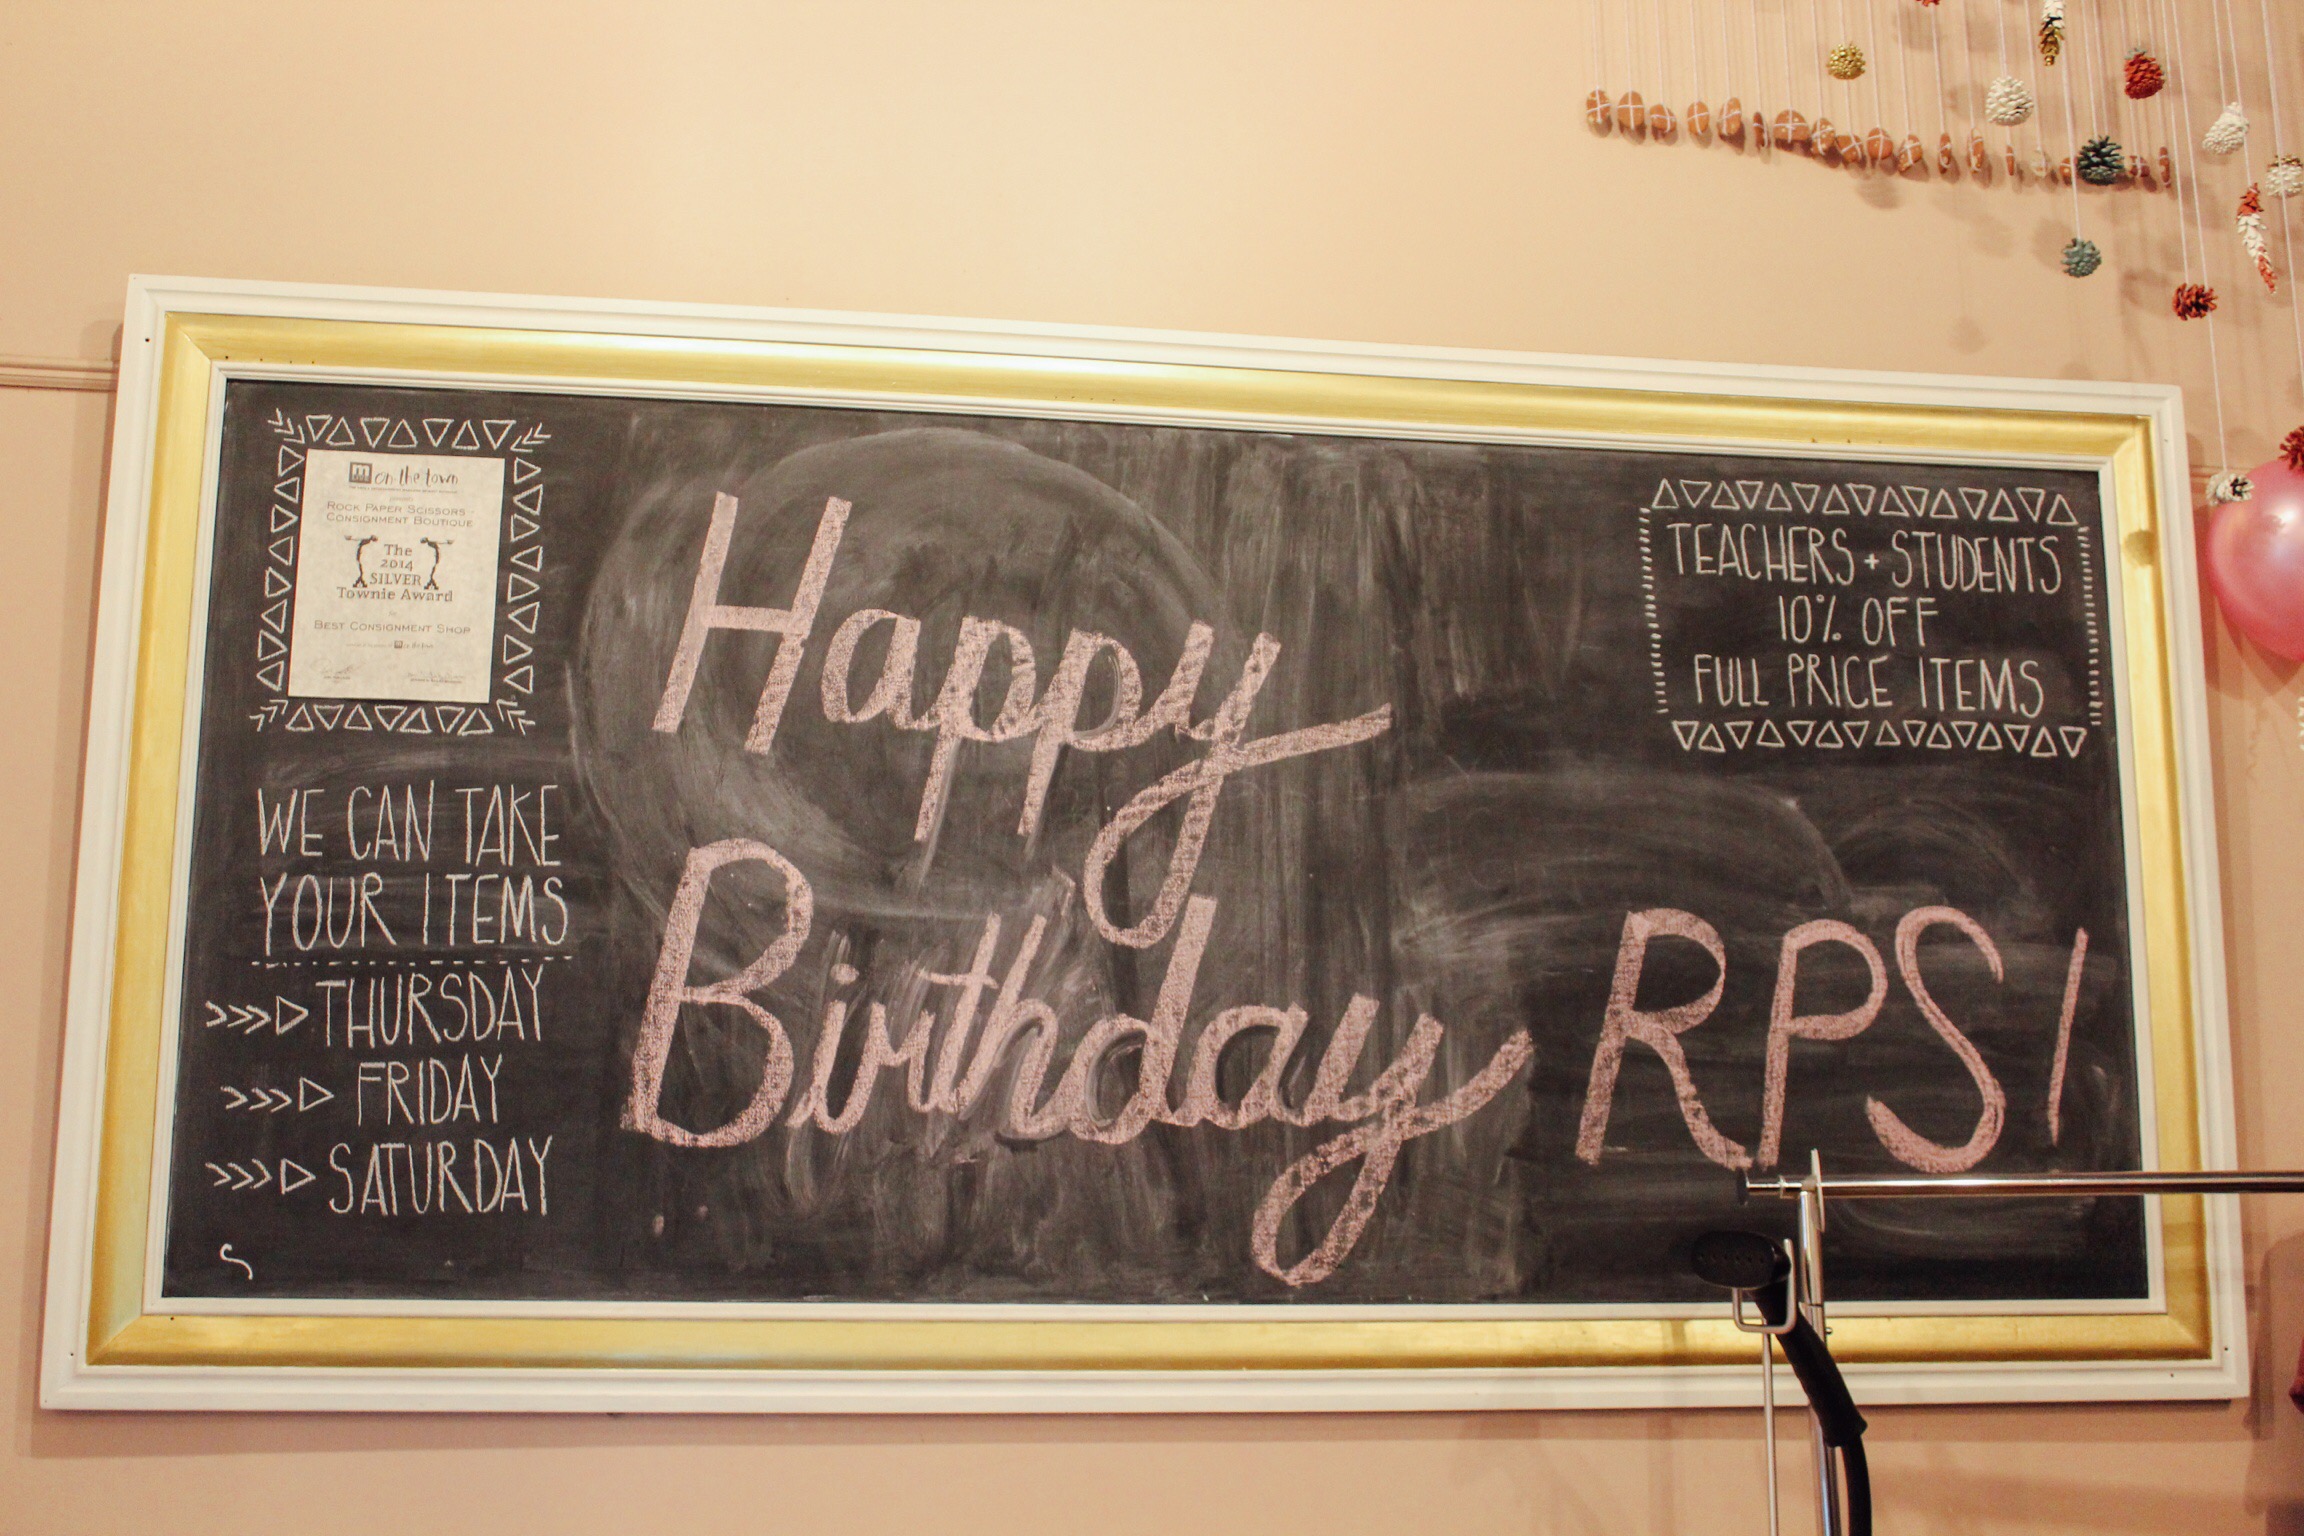 on the town
ROCK PAPER SCISSORS -
CONSIGNMENT BOUTIQUE
The
2014
SILVER
Townie Award
BEST CONSIGNMENT SHOP
WE CAN TAKE
YOUR ITEMS
THURSDAY
FRIDAY
SATURDAY
Happy
Birthday RPS!
TEACHERS + STUDENTS
10% OFF
FULL PRICE ITEMS